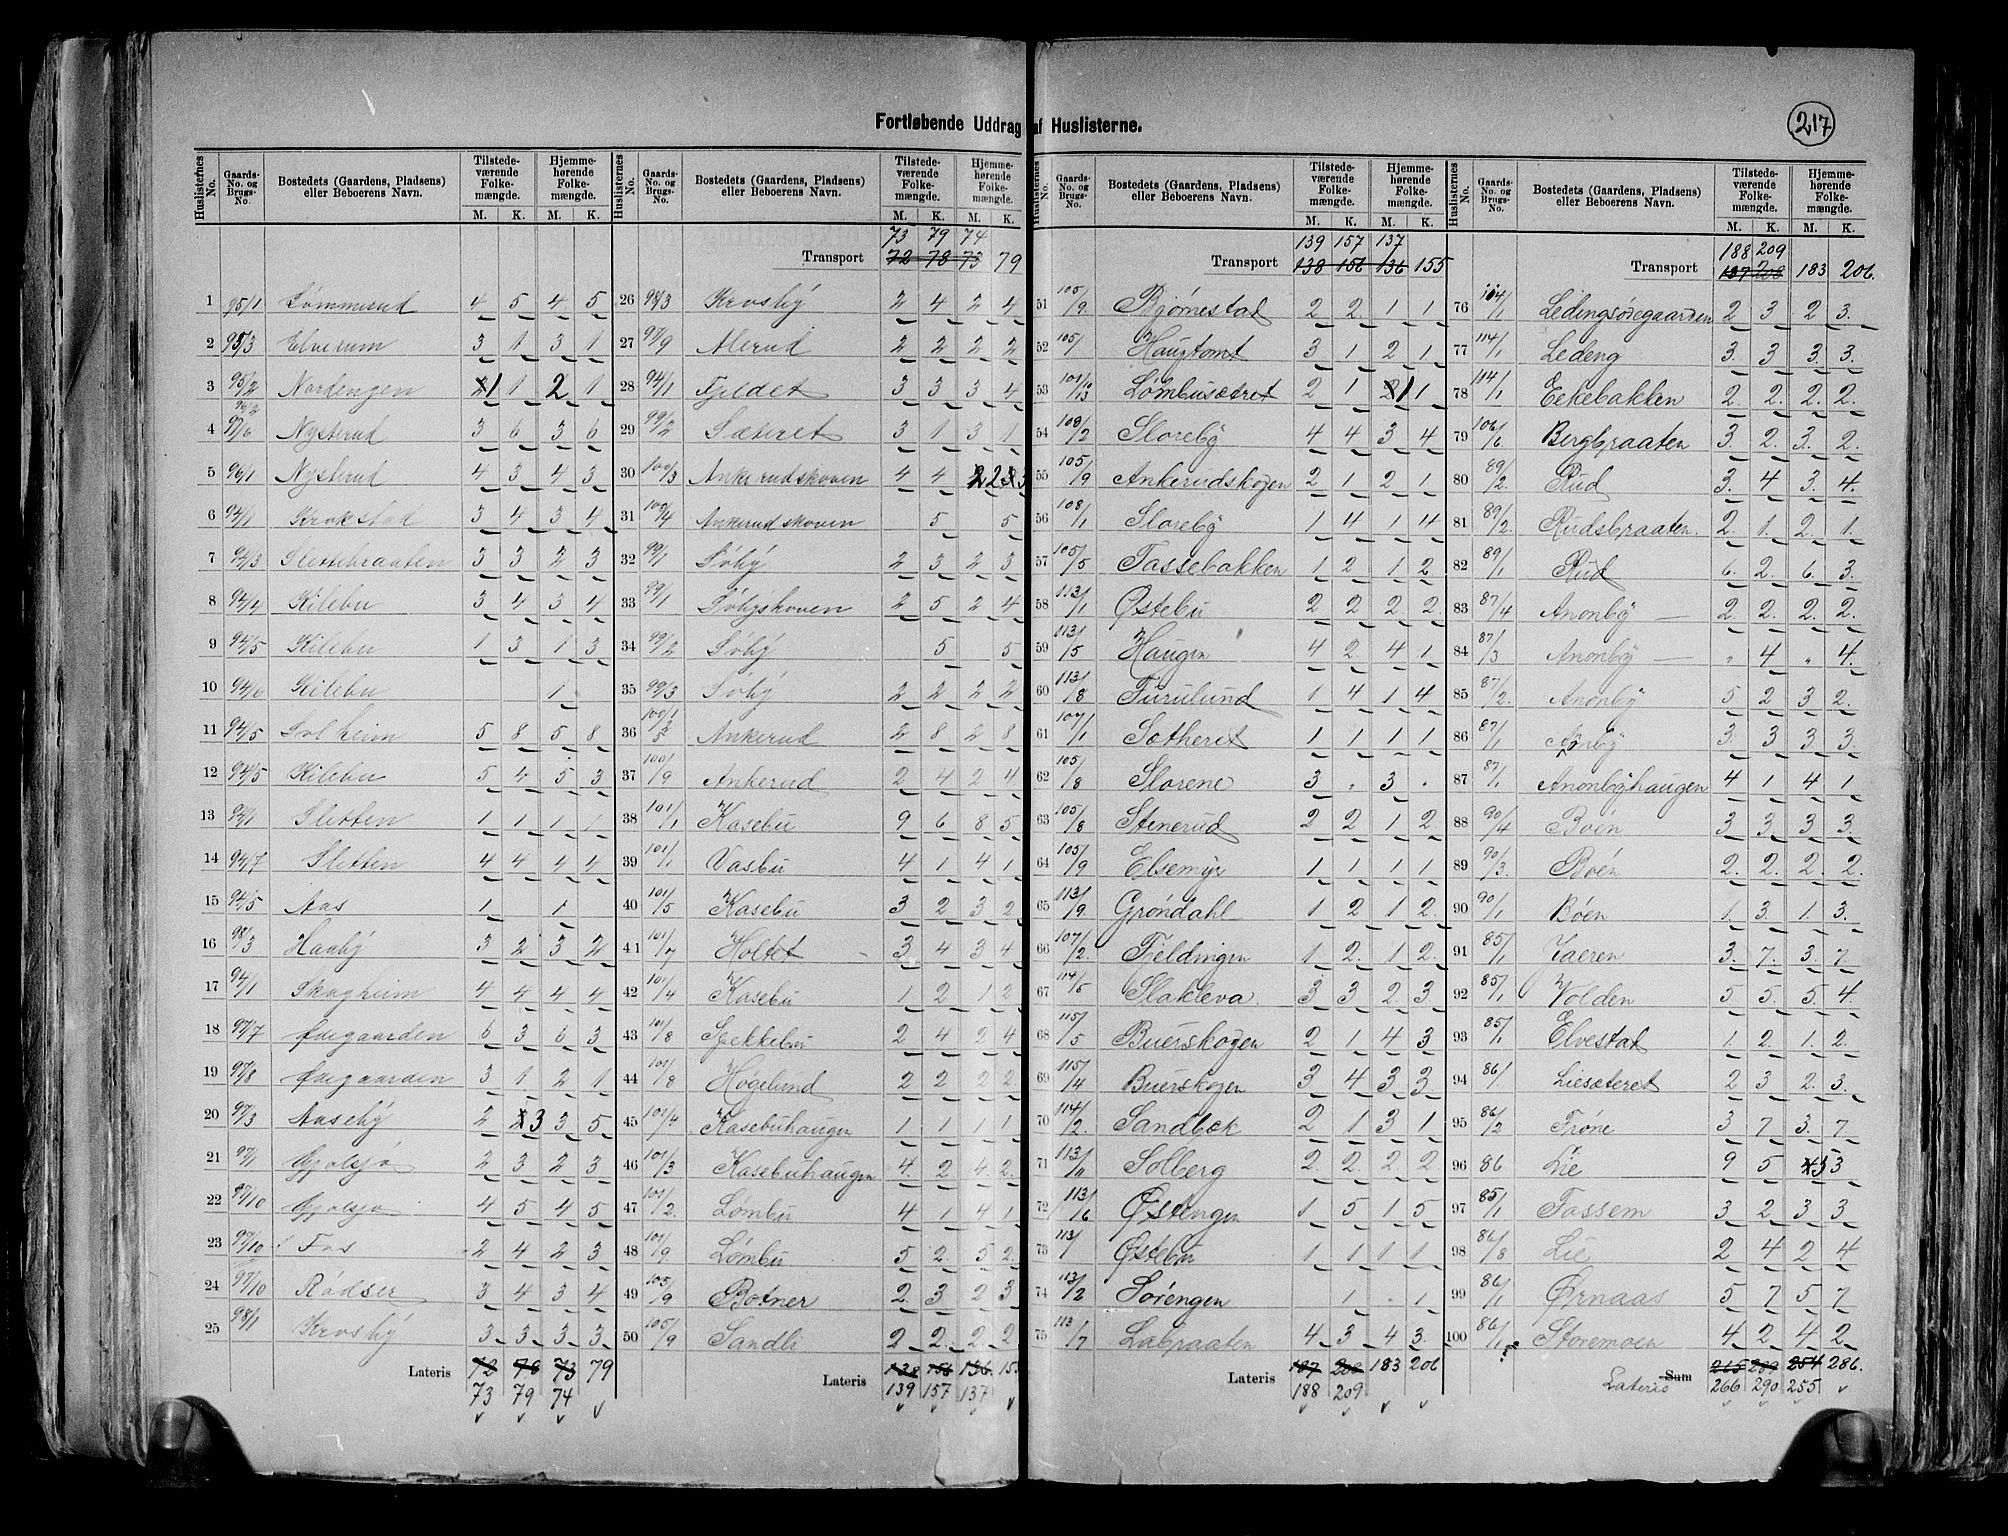 217
Fortløbende Uddrag af Huslisterne.
Huslisternes No. | Gaards-No. og Brugs-No. | Bostedets (Gaardens, Pladsens) eller Beboerens Navn. | Tilstedeværende Folkemængde. M. K. | Hjemmehørende Folkemængde. M. K.
1 95/1 Sømmerud 4 5 4 5
2 95/3 Elverum 3 1 3 1
3 95/2 Nordengen 1 1 2 1
4 97/6 Nysterud 3 6 3 6
5 96/1 Nysterud 4 3 4 3
6 94/1 Krokstad 3 4 3 4
7 94/3 Slettebraaten 3 3 2 3
8 94/4 Kilebu 3 4 3 4
9 94/5 Kilebu 1 3 1 3
10 94/6 Kilebu 1
11 94/5 Solheim 5 8 5 8
12 94/5 Kilebu 5 4 5 3
13 94/1 Sletten 1 1 1 1
14 94/7 Sletten 4 4 4 4
15 94/5 Aas 1 1
16 98/3 Haaby 3 2 3 2
17 94/1 Skogheim 4 4 4 4
18 97/7 Øiegaarden 6 3 6 3
19 97/8 Øiegaarden 3 1 2 1
20 97/3 Aaseby 2 3 3 5
21 97/1 Gjølsjø 2 3 2 3
22 97/10 Gjølsjø 4 5 4 5
23 97/10 Fos 2 4 2 3
24 97/10 Rødser 3 4 3 4
25 98/1 Krosby 3 3 3 3
Lateris 72 78 73 79
73 79 74
73 79 74
Transport 72 78 73 79
26 98/3 Krosby 2 4 2 4
27 97/9 Alerud 2 2 2 2
28 94/1 Fjeldet 3 3 3 4
29 99/2 Sæteret 3 1 3 1
30 100/3 Ankerudskoven 4 4 2 3
31 100/4 Ankerudskoven 5 5
32 99/1 Søby 2 3 2 3
33 99/1 Søbyskoven 2 5 2 4
34 99/2 Søby 5 5
35 99/3 Søby 2 2 2 2
36 100/1 Ankerud 2 8 2 8
37 100/9 Ankerud 2 4 2 4
38 101/1 Kasebu 9 6 8 5
39 101/1 Vasbu 4 1 4 1
40 101/5 Kasebu 3 2 3 2
41 101/7 Holtet 3 4 3 4
42 101/4 Kasebu 1 2 1 2
43 101/8 Spekkebu 2 4 2 4
44 101/8 Høgelund 2 2 2 2
45 101/4 Kasebuhaugen 1 1 1 1
46 101/3 Kasebuhaugen 4 2 4 2
47 101/2 Lømbu 4 1 4 1
48 101/9 Lømbu 5 2 5 2
49 105/9 Botner 2 3 2 3
50 105/9 Sandli 2 2 2 2
Lateris 138 156 136 15
139 157 137
139 157 137
Transport 138 156 136 155
51 105/9 Bjørnestad 2 2 1 1
52 105/1 Haugtomt 3 1 2 1
53 101/10/13 Lømbusætret 2 1 1 1
54 108/2 Sloreby 4 4 3 4
55 105/9 Ankerudskogen 2 1 2 1
56 108/1 Sloreby 1 4 1 4
57 105/5 Tassebakken 1 2 1 2
58 113/1 Østebu 2 2 2 2
59 113/5 Haugen 4 2 4 1
60 113/8 Furulund 1 4 1 4
61 107/1 Sætheret 1 1 1 1
62 105/8 Slorene 3 . 3 .
63 105/8 Stinerud 2 2 1 2
64 105/9 Elsemyr 1 1 1 1
65 113/9 Grøndahl 1 2 1 2
66 107/2 Fjeldingen 1 2 1 2
67 114/5 Slakleva 3 3 2 3
68 115/5 Buerskogen 2 1 4 3
69 115/4 Buerskogen 3 4 3 3
70 114/2 Sandbæk 2 1 3 1
71 113/11 Solberg 2 2 2 2
72 113/6 Østengen 1 5 1 5
73 113/1 Østebu 1 1 1 1
74 113/2 Sørengen 1 . 1
75 113/7 Labraaten 4 3 4 3
Lateris 187 208 183 206
188 209
188 209
Transport 187 208 183 206.
76 114/1 Ledingsødegaarden 2 3 2 3
77 114/1 Ledeng 3 3 3 3
78 114/1 Eekebakken 2 2 2 2
79 106/6 Bergbraaten 3 2 3 2
80 89/2 Rud 3 4 3 4
81 89/2 Rudsbraaten 2 1 2 1
82 89/1 Rud 6 2 6 3
83 87/4 Anonby 2 2 2 2
84 87/3 Anonby „ 4 „ 4
85 87/2 Anonby 5 2 3 2
86 87/1 Anonby 3 3 3 3
87 87/1 Anonbyhaugen 4 1 4 1
88 90/4 Boén 3 3 3 3
89 90/3 Bøén 2 2 2 2
90 90/1 Bøen 1 3 1 3
91 85/1 Jaeren 3 7 3 7
92 85/1 Volden 5 5 5 4
93 85/1 Elvestad 1 2 1 2
94 86/1 Liesæteret 2 3 2 3
95 86/2 Trøne 3 7 3 7
96 86 Lie 9 5 3 3
97 85/1 Fossem 3 2 3 3
98 86/8 Lie 2 4 2 4
99 86/1 Ørnaas 5 7 5 7
100 86/1 Storemoen 4 2 4 2
Lateris Sum 265 289 254 286.
266 290 255